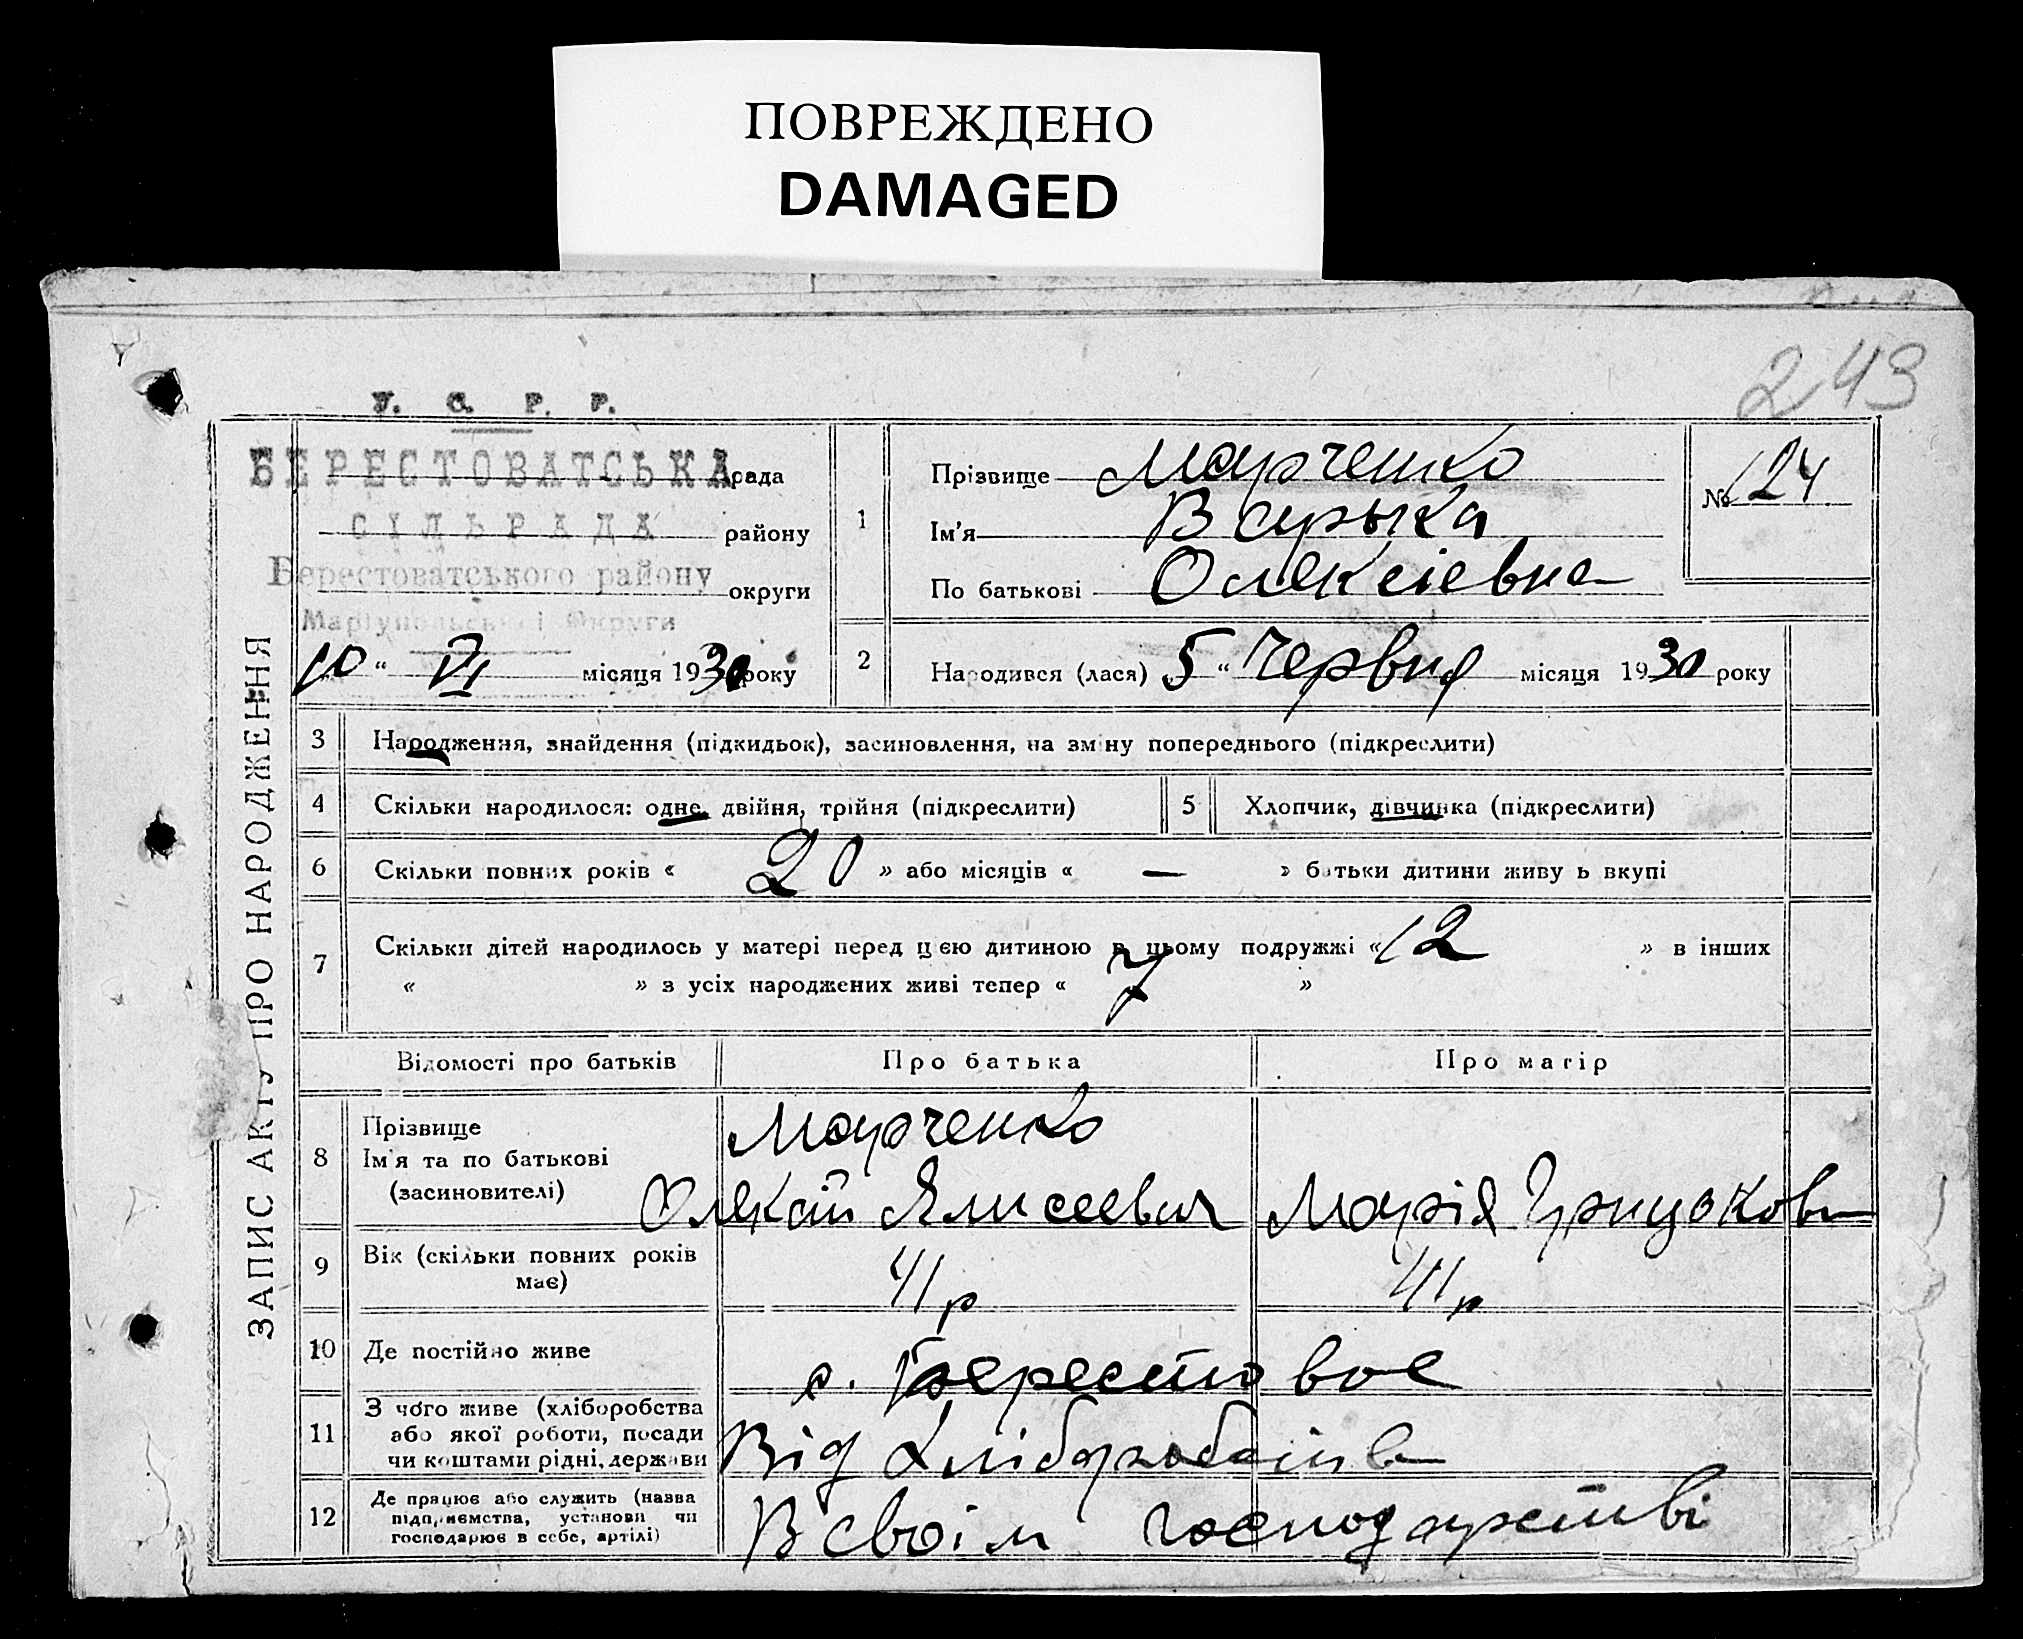 ПОВРЕЖДЕНО
DAMAGED
243
У. С. Р. Р.
БЕРЕСТОВАТСЬКА рада
СІЛЬРАДА району
Берестоватського району округи
Маріупольської Округи
10 “ VI місяця 1930 року
ЗАПИС АКТУ ПРО НАРОДЖЕННЯ
1 Прізвище Марченко
Ім'я Варька
По батькові Олексіевна
№ 124
2 Народився (лася) 5 “ Червня місяця 1930 року
3 Народження, знайдення (підкидьок), засиновлення, на зміну попереднього (підкреслити)
4 Скільки народилося: одне, двійня, трійня (підкреслити) 5 Хлопчик, дівчинка (підкреслити)
6 Скільки повних років « 20 » або місяців « — » батьки дитини живуть вкупі
7 Скільки дітей народилось у матері перед цією дитиною в цьому подружжі « 12 » в інших
« » з усіх народжених живі тепер « 7 »
Відомості про батьків Про батька Про матір
8 Прізвище Марченко
Ім'я та по батькові
(засиновителі) Олексій Елисеевич Марія Грицьковн
9 Вік (скільки повних років має) 41 р 41 р
10 Де постійно живе с. Берестовое
11 З чого живе (хліборобства
або якої роботи, посади
чи коштами рідні, держави Від Хліборобств
12 Де працює або служить (назва
підприємства, установи чи
господарює в себе, артілі) В своім господарстві